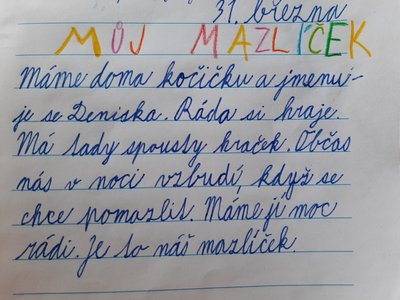 31. března
MŮJ MAZLÍČEK
Máme doma kočičku a jmenu-
je se Deniska. Ráda si hraje.
Má tady spousty hraček. Občas
nás v noci vzbudí, když se
chce pomazlit. Máme ji moc
rádi. Je to náš mazlíček.